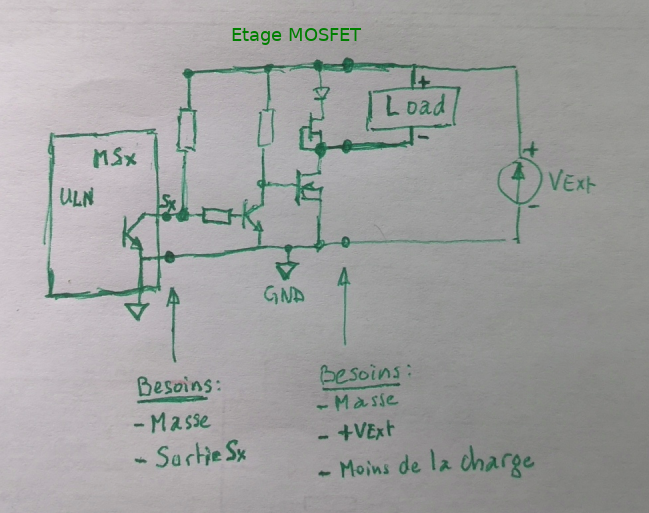 Etage MOSFET
+
Load
-
MSx
ULN
Sx
+
VExt
-
GND
Besoins:
- Masse
- Sortie Sx
Besoins:
- Masse
- +VExt
- Moins de la charge